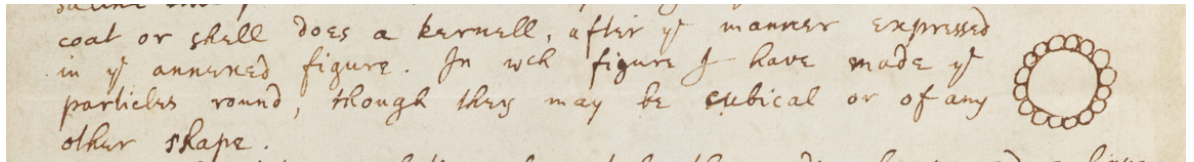 coat or shell does a kernell, after ye manner expressed
in ye annexed figure. In wch figure I have made ye
particles round, though they may be cubical or of any
other shape.